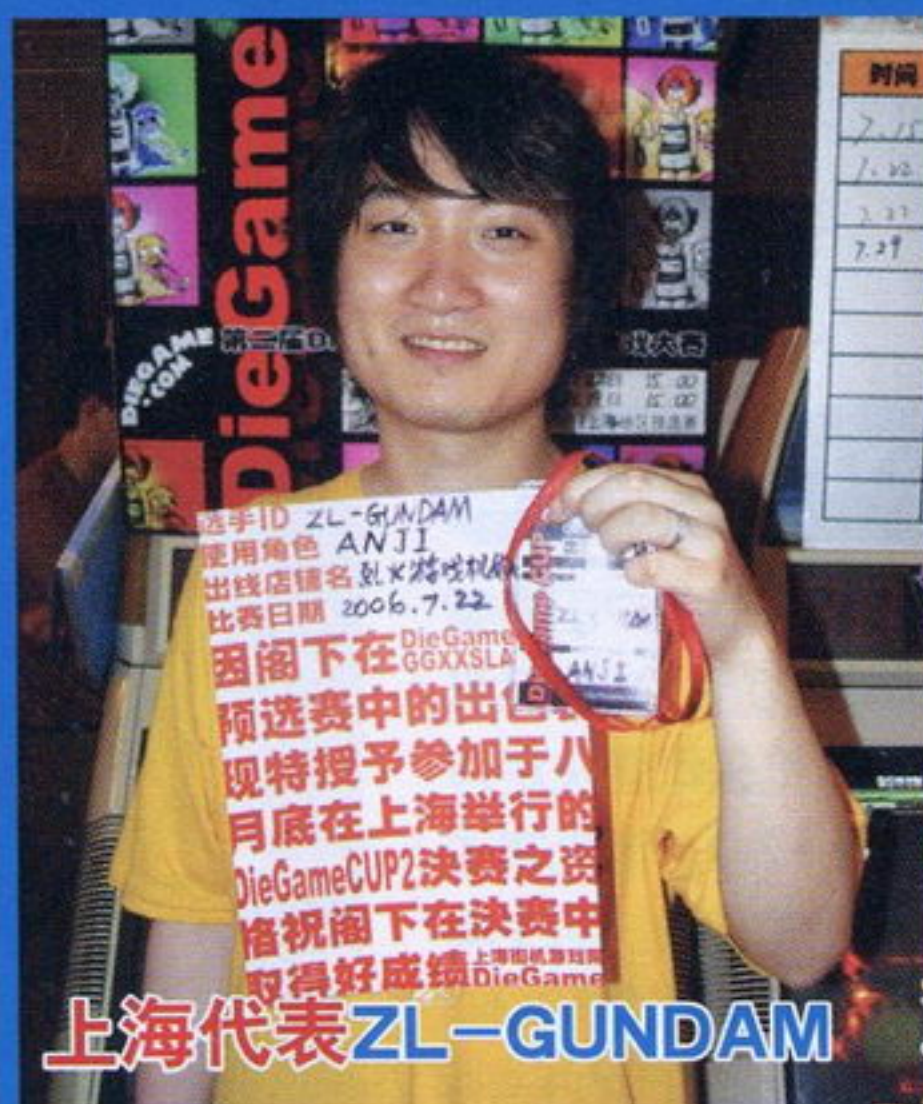 DieGame
时间
7.29
DIEGAME
.COM
第二届D
战大赛
15:00
15:00
选手ID ZL-GUNDAM
使用角色 ANJI
出线店铺名
比赛日期 2006.7.22
因阁下在DieGame
GGXXSLA
预选赛中的出色表
现特授予参加于八
月底在上海举行的
DieGameCUP2决赛之资
格祝阁下在决赛中
取得好成绩上海街机游戏网
DieGame
ANJI
上海代表ZL-GUNDAM